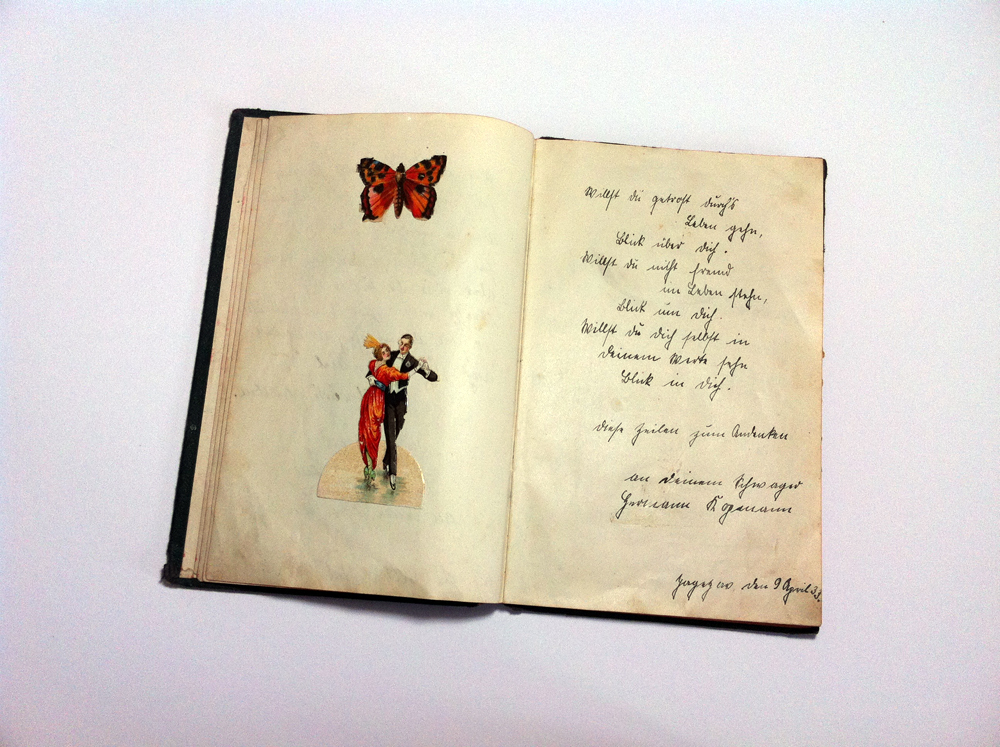 Willst du getrost durch's
Leben gehn,
Blick über dich.
Willst du nicht fremd
im Leben stehn,
Blick um dich.
Willst du dich selbst in
deinem Werte sehn
Blick in dich.
diese Zeilen zum Andenken
an deinem Schwager
Hermann
den 9 April